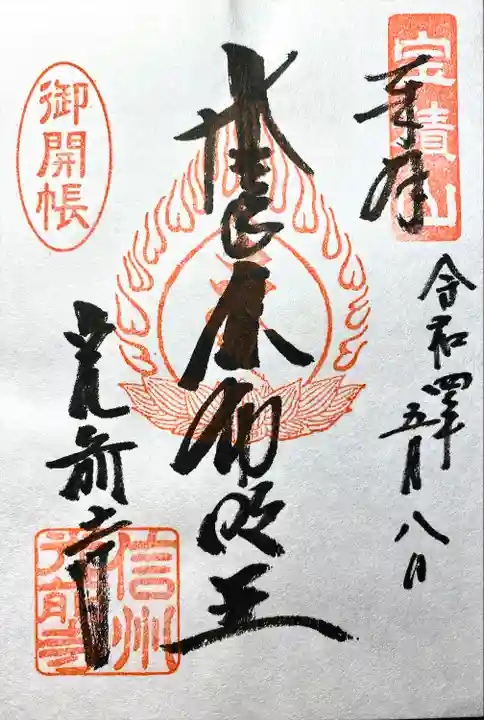 宝積山
奉拝
令和四年
五月八日
秘仏不動明王
光前寺
御開帳
信州
光前寺